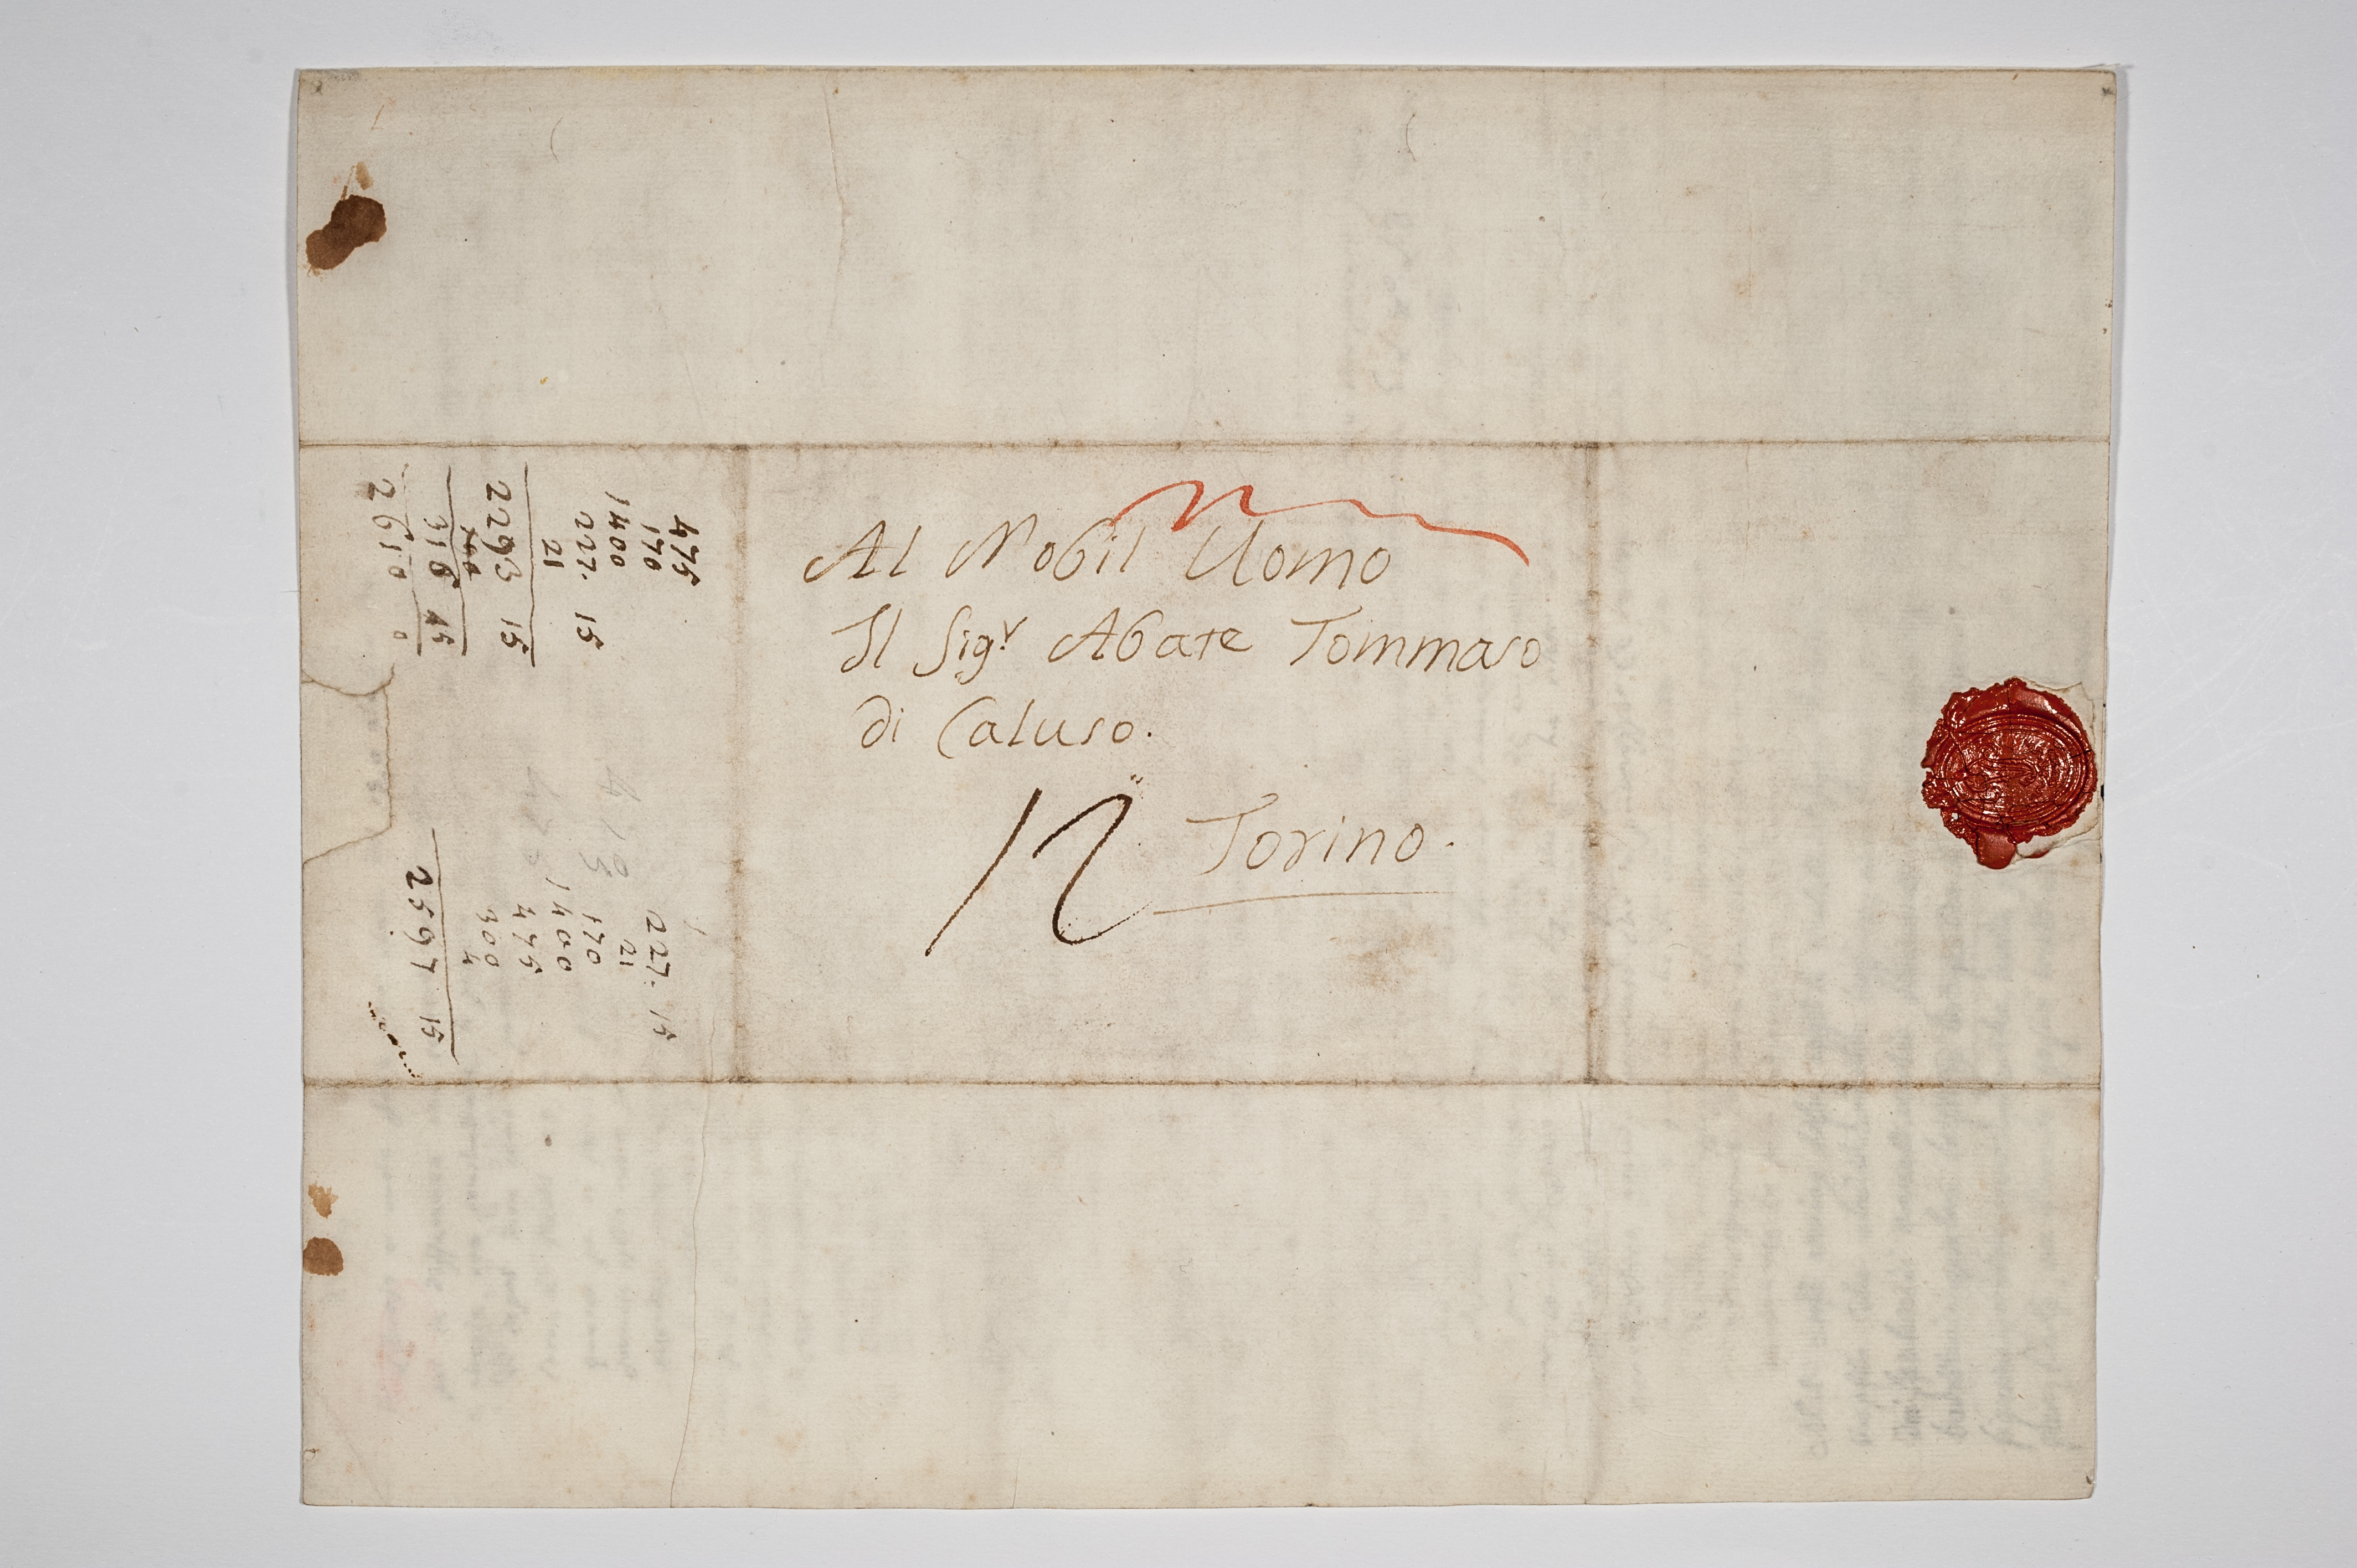 Al Nobil Uomo
Il Sig.r Abate Tommaso
di Caluso.
12 Torino.
475
170
1400
227. 15
21
2293 15
316 15
2610 0
227. 15
21
170
1400
475
300
4
2597 15